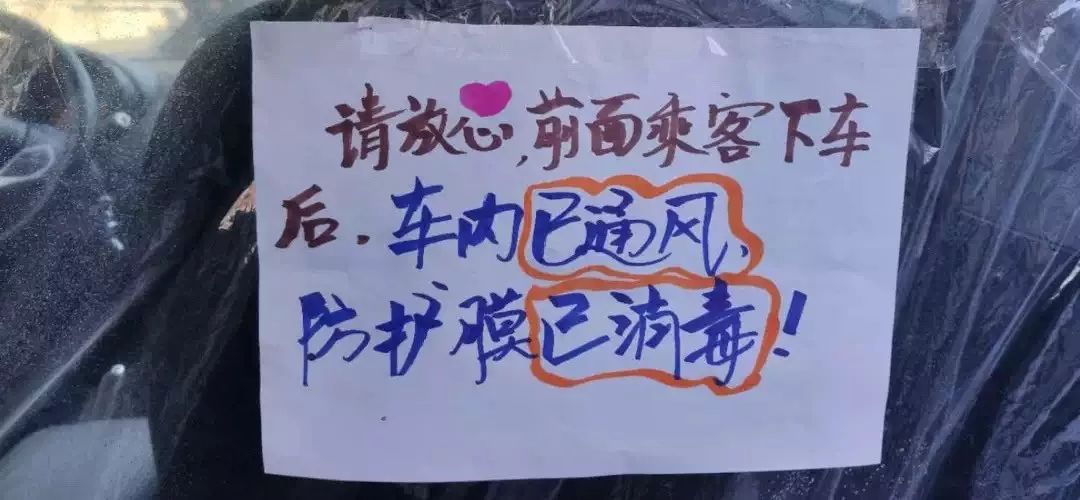 请放心,前面乘客下车
后,车内已通风、
防护膜已消毒!